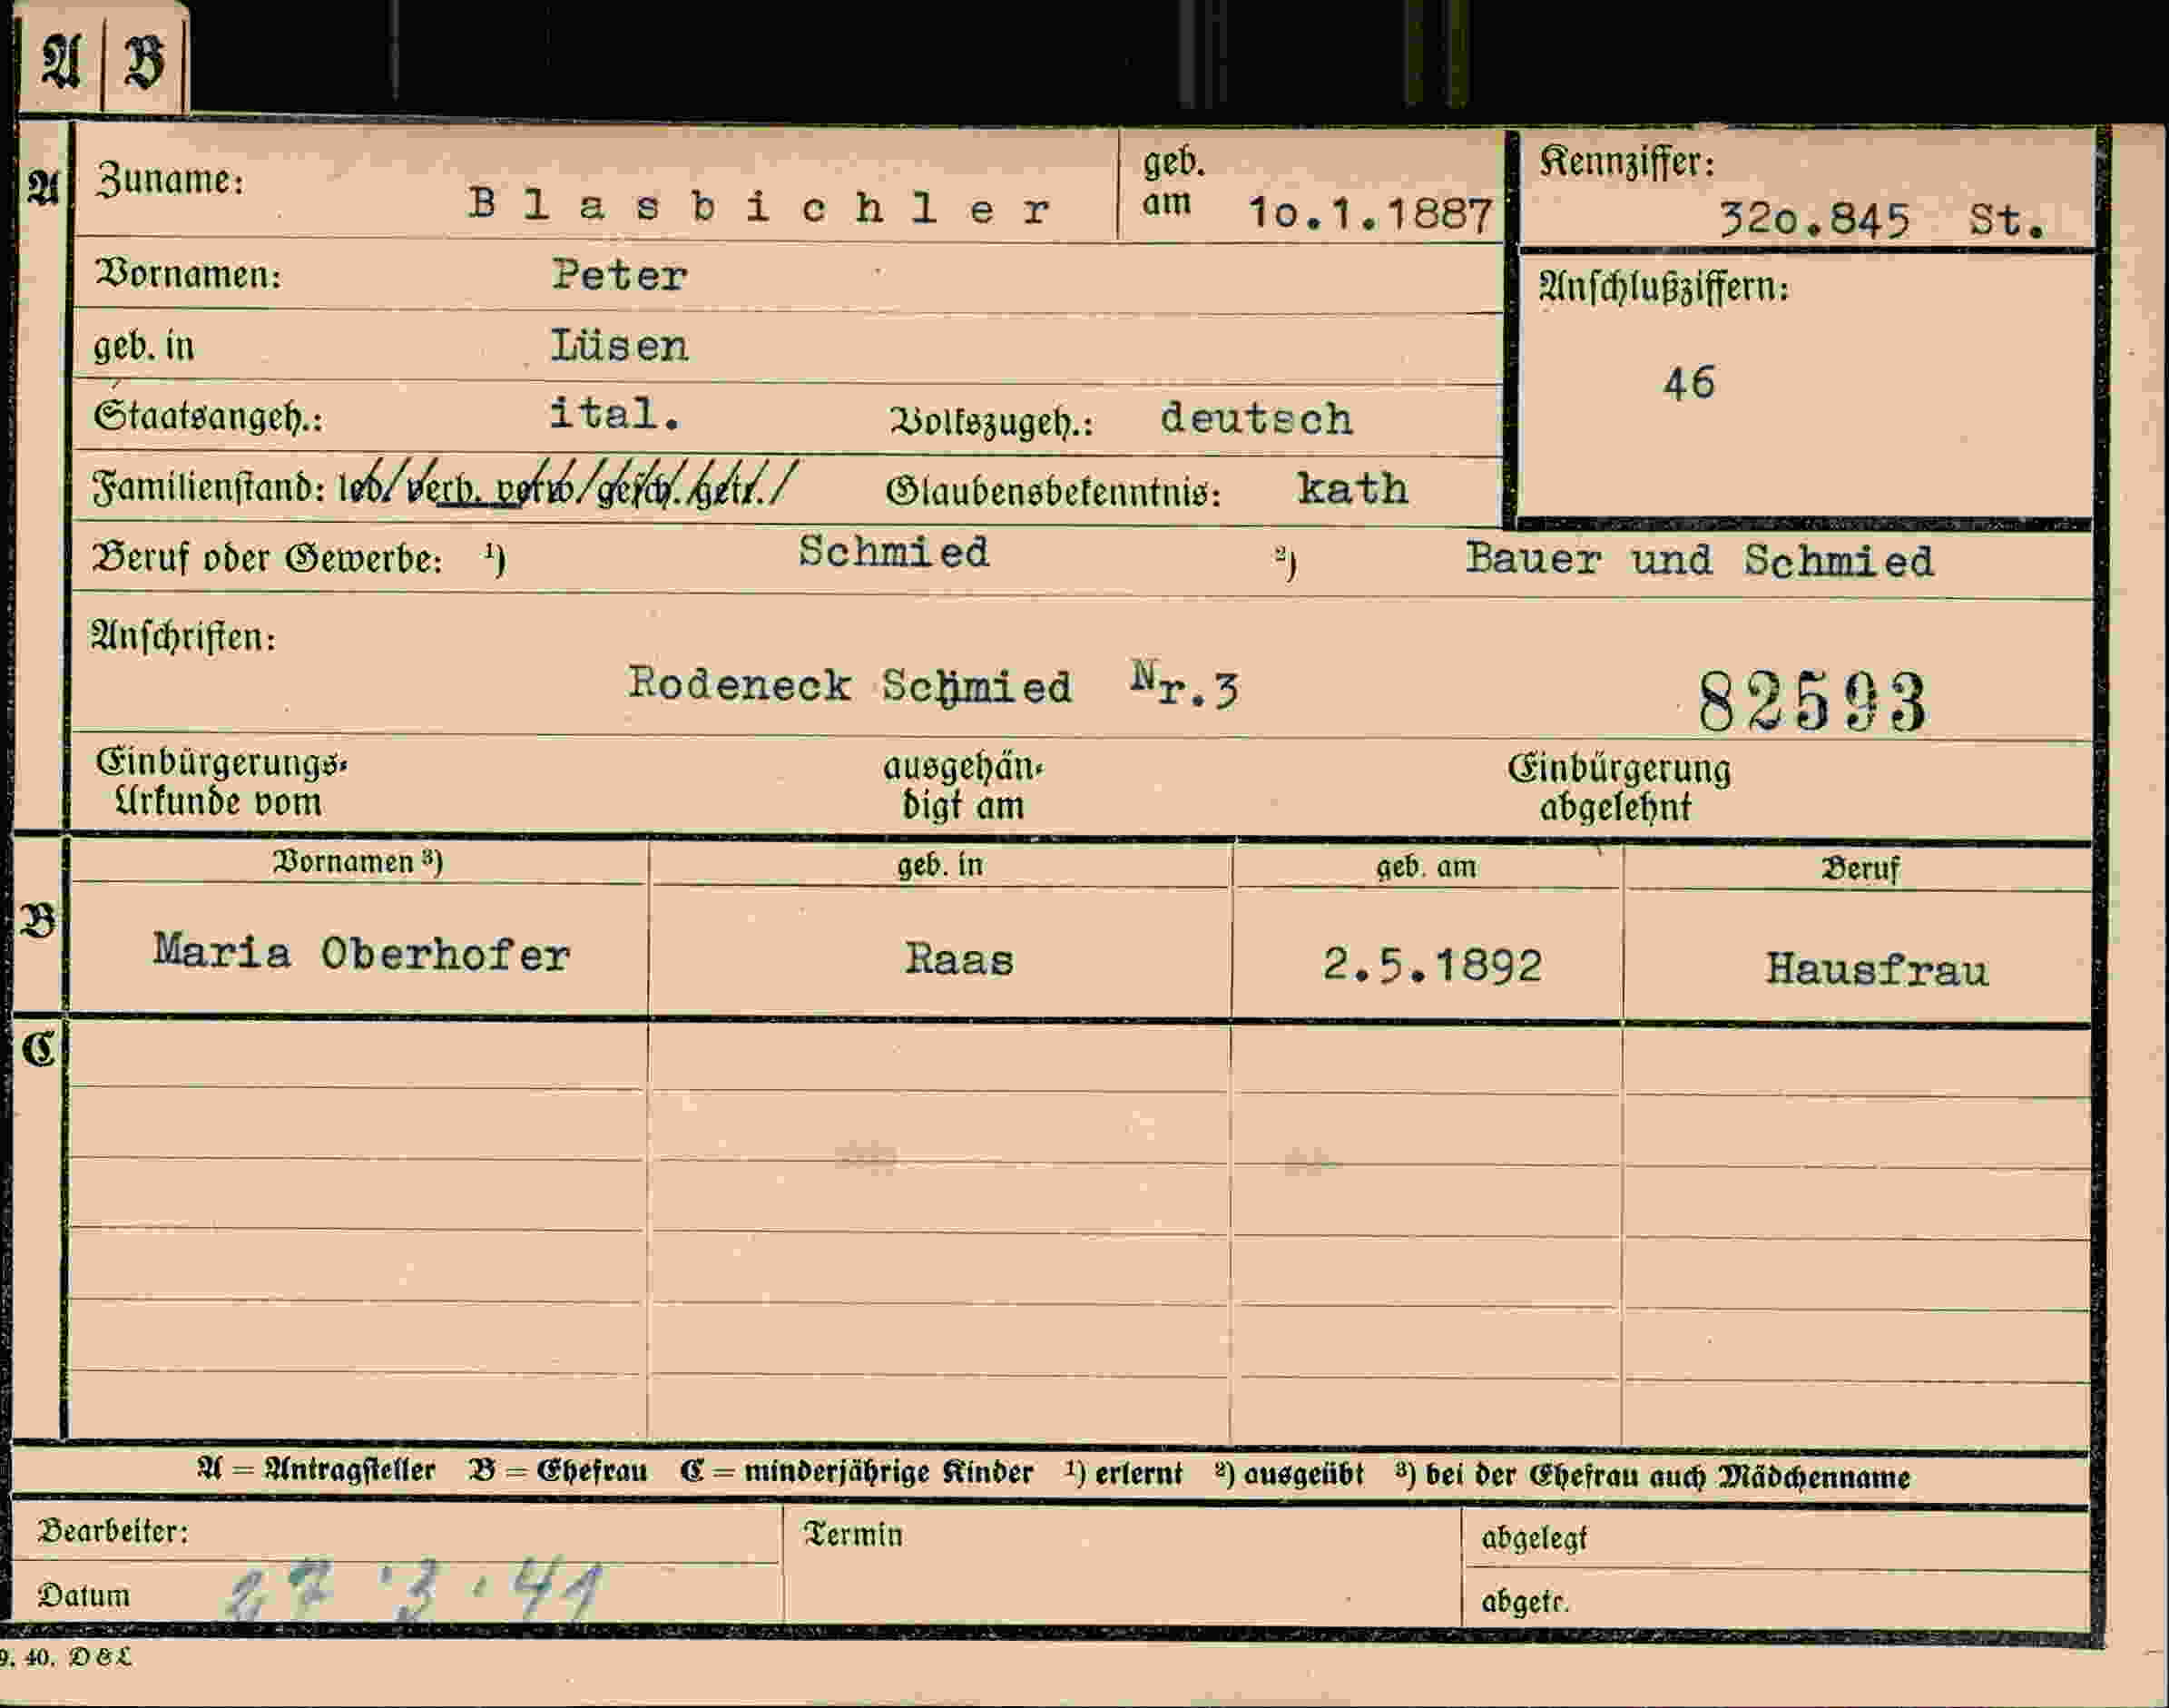 A B
A
Zuname: Blasbichler geb. am 10.1.1887 Kennziffer: 320.845 St.
Vornamen: Peter
Anschlußziffern: 46
geb. in Lüsen
Staatsangeh.: ital. Volkszugeh.: deutsch
Familienstand: led/verh. verw/gesch./getr./ Glaubensbekenntnis: kath
Beruf oder Gewerbe: ¹) Schmied ²) Bauer und Schmied
Anschriften:
Rodeneck Schmied Nr.3 82593
Einbürgerungs-Urkunde vom ausgehändigt am Einbürgerung abgelehnt
B
Vornamen ³) geb. in geb. am Beruf
Maria Oberhofer Raas 2.5.1892 Hausfrau
C
A = Antragsteller B = Ehefrau C = minderjährige Kinder ¹) erlernt ²) ausgeübt ³) bei der Ehefrau auch Mädchenname
Bearbeiter: Termin abgelegt
Datum 27.3.41 abgetr.
9. 40. D & L